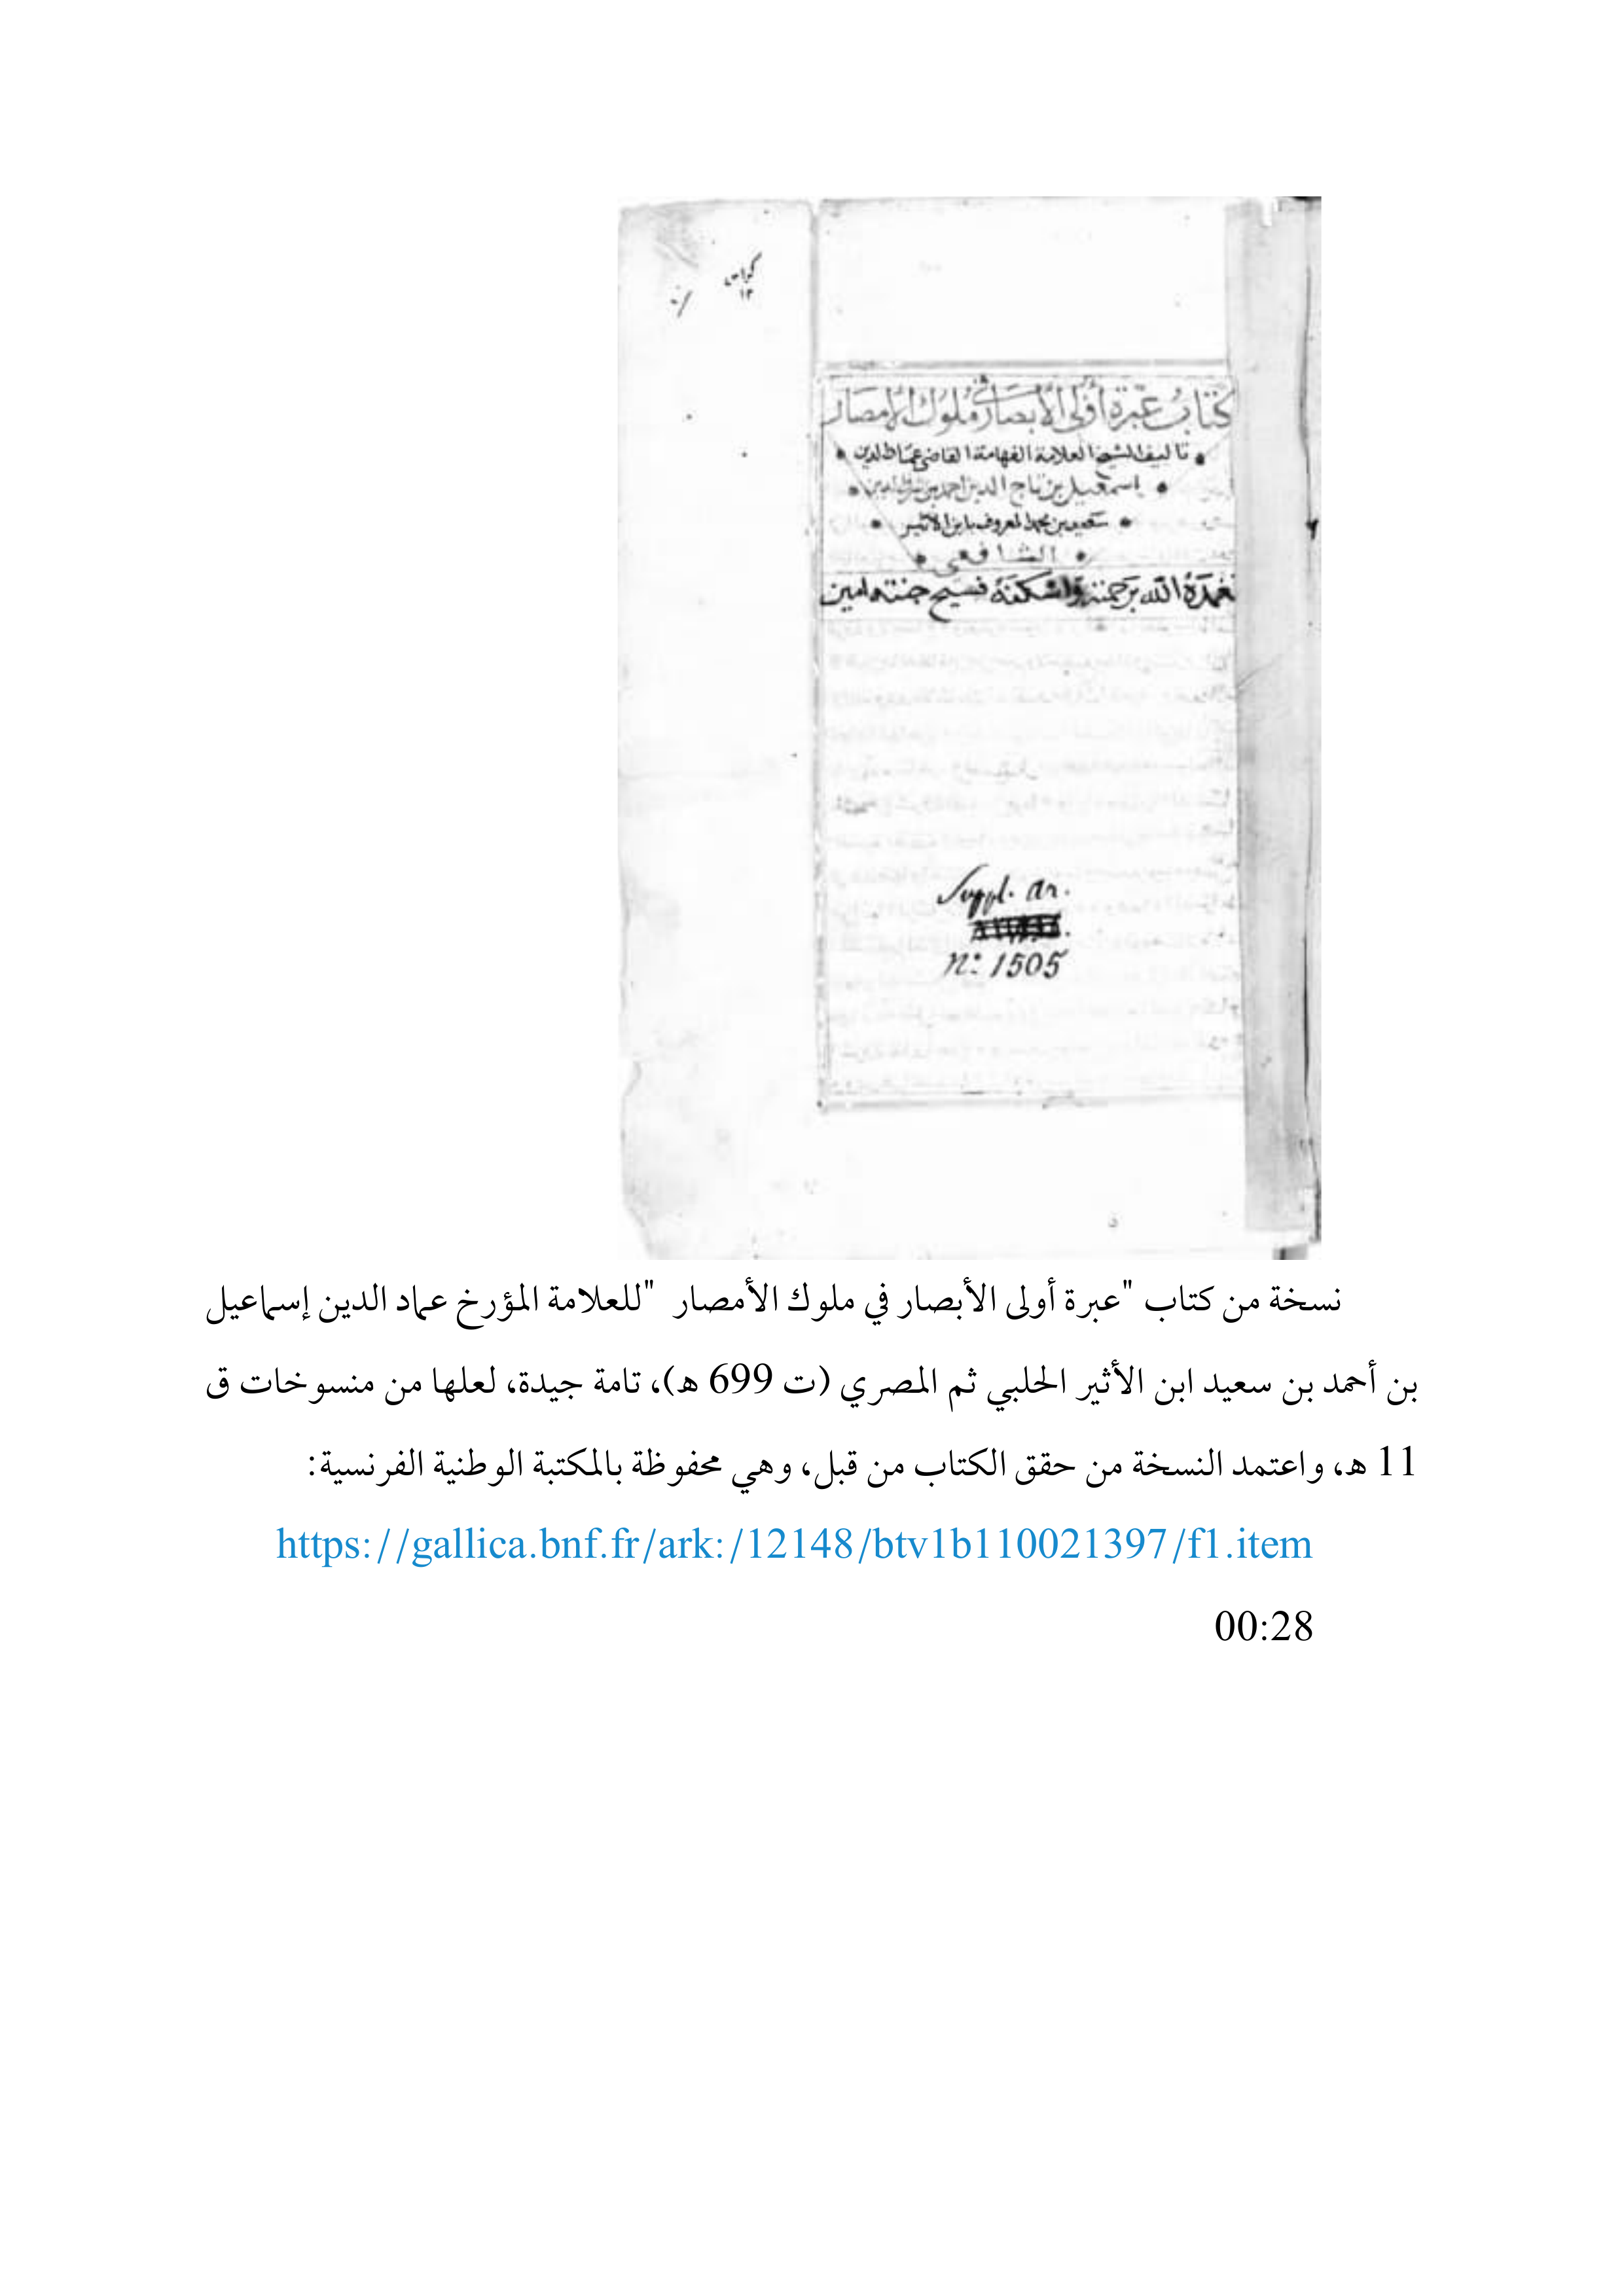 كراس
١٢
كتاب عبرة أولى الأبصار في ملوك الأمصار
تاليف الشيخ العلامة الفهامة القاضي عماد الدين
اسمعيل بن تاج الدين احمد بن
سعيد بن محمد المعروف بابن الاثير
الشافعي
تغمده الله برحمته واسكنه فسيح جنته امين
Suppl. ar.
n: 1505
نسخة من كتاب "عبرة أولى الأبصار في ملوك الأمصار "للعلامة المؤرخ عماد الدين إسماعيل
بن أحمد بن سعيد ابن الأثير الحلبي ثم المصري (ت 699 ه)، تامة جيدة، لعلها من منسوخات ق
11 ه، واعتمد النسخة من حقق الكتاب من قبل، وهي محفوظة بالمكتبة الوطنية الفرنسية:
https://gallica.bnf.fr/ark:/12148/btv1b110021397/f1.item
00:28